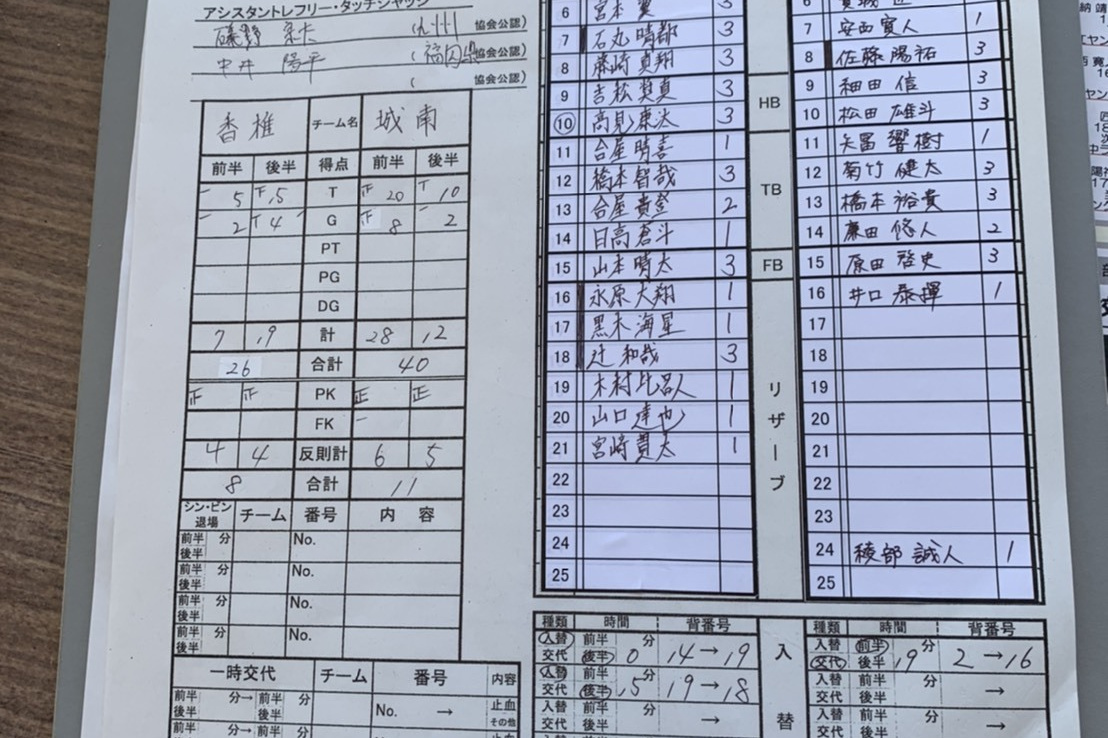 アシスタントレフリー・タッチジャッジ
協会公認)
陽平 (福岡県 協会公認)
( 協会公認)
香椎 チーム名 城南
前半 後半 得点 前半 後半
5 15 T 20 10
2 4 G 8 2
PT
PG
DG
7 19 計 28 12
26 合計 40
正 正 PK 正 正
FK
4 4 反則計 6 5
8 合計 11
シン・ビン 退場 チーム 番号 内容
前半 分 No.
後半
前半 分 No.
後半
前半 分 No.
後半
前半 分 No.
後半
一時交代 チーム 番号 内容
前半 分→ 前半 分 No. → 止血
後半 後半 その他
前半 分→ 前半 分 止血
6 宮本 翼 3
7 石丸 晴都 3
8 藤崎 真翔 3
9 吉松 奨真 3
10 高見 康汰 3
11 合屋 晴喜 1
12 橋本 智哉 3
13 合屋 貴登 2
14 日高 蒼斗 1
15 山本 晴太 3
16 永原 大翔 1
17 黒木 海星 1
18 辻 和哉 3
19 木村 比呂人 1
20 山口 達也 1
21 宮崎 貫太 1
22
23
24
25
HB
TB
FB
リザーブ
6
7 安西 寛人 1
8 佐藤 陽祐 3
9 細田 信 3
10 松田 雄斗 3
11 矢冨 響樹 1
12 菊竹 健太 3
13 橋本 裕貴 3
14 廉田 悠人 2
15 原田 啓史 3
16 井口 泰揮 1
17
18
19
20
21
22
23
24 稜部 誠人 1
25
種類 時間 背番号
入替 前半 分
交代 後半 0 14→19
入替 前半 分
交代 後半 15 19→18
入替 前半 分
交代 後半 →
入替 前半 分
入替
種類 時間 背番号
入替 前半 分
交代 後半 19 2→16
入替 前半 分
交代 後半 →
入替 前半 分
交代 後半 →
入替 前半 分